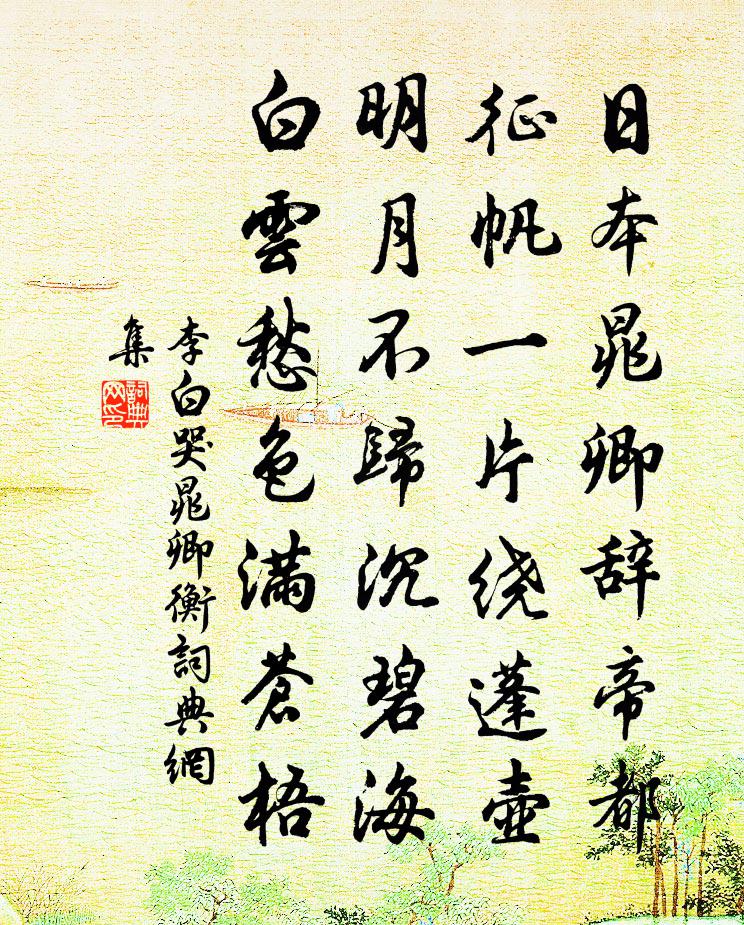 日本晁卿辞帝都
征帆一片绕蓬壶
明月不歸沉碧海
白雲愁色滿蒼梧
李白哭晁卿衡詞典網
集
詞典
网印